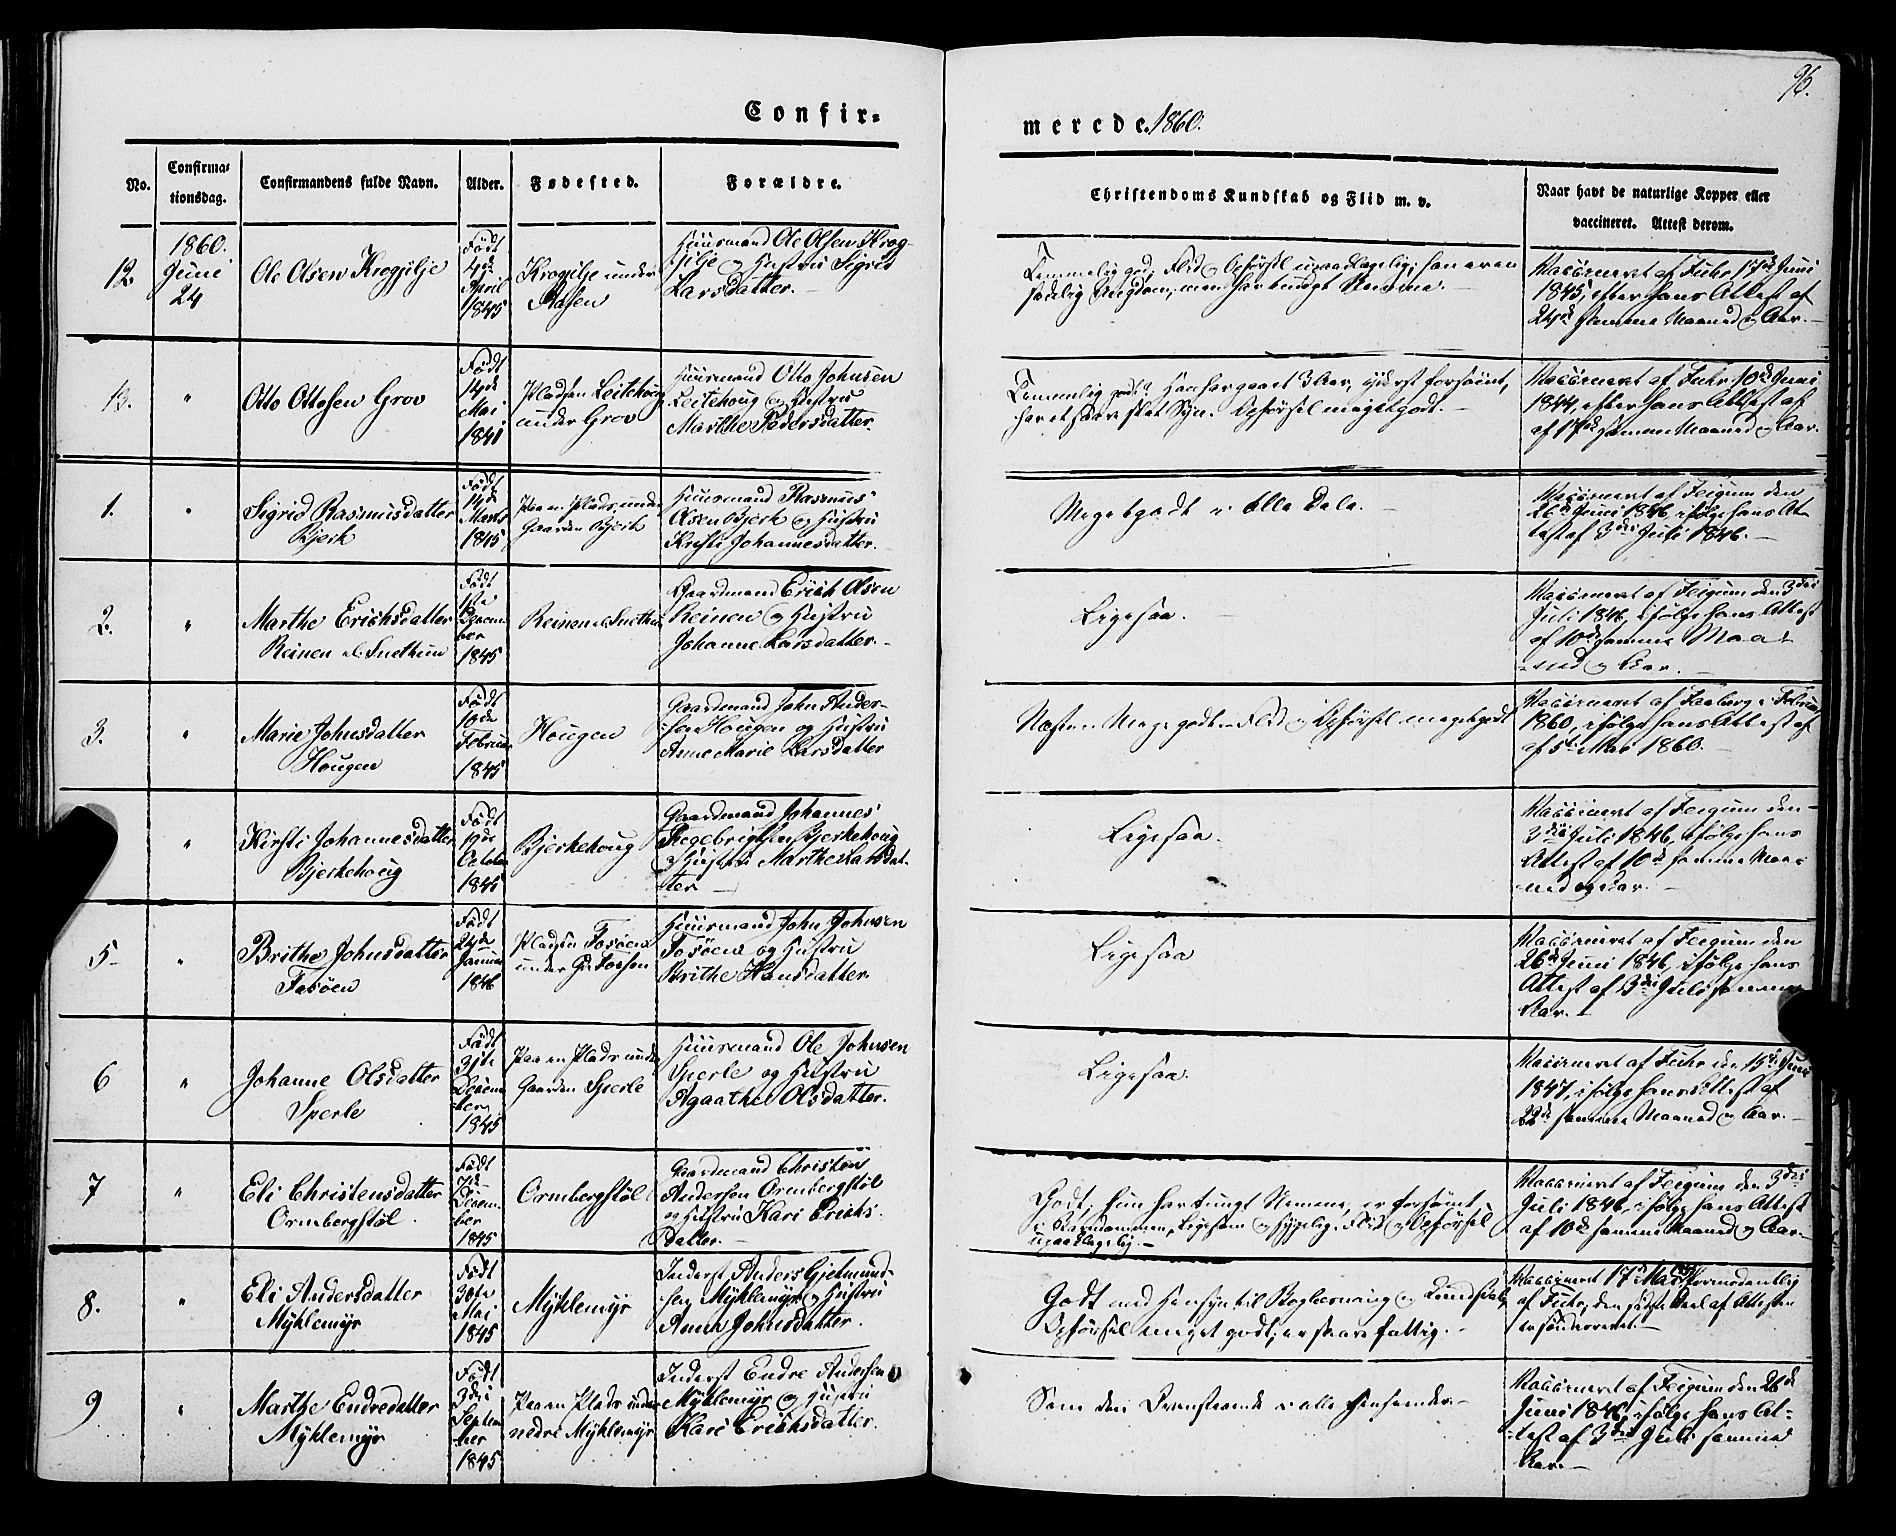 96.
Confir-
merede. 1860.
No.
Confirma-
tionsdag.
Confirmandens fulde Navn.
Alder.
Fødested.
Forældre.
Christendoms Kundskab og Flid m. v.
Naar havt de naturlige Kopper eller
vaccineret. Attest derom.
12
1860.
Juni
24
Ole Olsen Krogjilje
Født
4de
April
1845
Krogjilje under
Huusmand Ole Olsen Krog-
jilje og Hustru Sigrid
Larsdatter.
Temmelig god. Flid og Opførsel upaaklagelig; han er en
men har tungt Nemme.
Vaccineret af Fuhr 17de Juni
1845, efter hans Attest af
24de samme Maaned og Aar.
13.
"
Otto Ottosen Grov
Født
14de
Mai
1841
Pladsen Leitehoug
under Grov
Huusmand Otto Johnsen
Leitehoug og Hustru
Marthe Pedersdatter.
Temmelig godt. Han har gaaet 3 Aar, yderst forsømt,
har et svært slet Syn. Opførsel meget godt.
Vaccineret af Fuhr 10de Juni
1844, efter hans Attest af
af 17de samme Maaned og Aar.
1.
"
Sigrid Rasmusdatter
Bjerk
Født
14de
Marts
1845
Paa en Plads under
Gaarden Bjerk
Huusmand Rasmus
Olsen Bjerk og Hustru
Kristi Johannesdatter.
Meget godt i alle Dele.
Vaccineret af Feigum den
26de Juni 1846, ifølge hans At-
test af 3die Juli 1846.
2.
"
Marthe Erichsdatter
Reinen Snethun
Født
1ste
Decem-
ber
1845
Reinen Snethun
Gaardmand Erich Olsen
Reinen og Hustru
Johanne Larsdatter.
Ligesaa.
Vaccineret af Feigum den 3die
Juli 1846, ifølge hans Attest
af 10de samme Maa-
ned og Aar.
3.
"
Marie Johnsdatter
Hougen
Født
10de
Februar
1845
Hougen
Gaardmand John Ander-
sen Hougen og Hustru
Anne Marie Larsdatter
Næsten Meget godt. Flid og Opførsel meget godt
Vaccineret af Faaberg i Februar
1860, ifølge hans Attest af
af 5te Mai 1860.
"
Kirsti Johannesdatter
Bjerkehoug
Født
19de
October
1845
Bjerkehoug
Gaardmand Johannes
Bjerkehoug
og Hustru Marthe Larsdat-
ter
Ligesaa.
Vaccineret af Feigum den
3die Juli 1846, ifølge hans
Attest af 10de samme Maa-
ned og Aar.
5
"
Brithe Johnsdatter
Fosøen
Født
24de
Januar
1846
Pladsen Fosøen
under Gd. Fossen
Huusmand John Johnsen
Fosøen og Hustru
Brithe Hansdatter.
Ligesaa
Vaccineret af Feigum den
26de Juni 1846, ifølge hans
Attest af 3die Juli samme
Aar.
6
"
Johanne Olsdatter
Sperle
Født
1845
Paa en Plads under
Gaarden Sperle
Huusmand Ole Johnsen
Sperle og Hustru
Agaathe Olsdatter.
Ligesaa.
Vaccineret af Fuhr den 15de Juni
1847, ifølge hans Attest af
22de samme Maaned og Aar.
7
"
Eli Christensdatter
Ormbergstøl
Født
7de
Decem-
ber
1845
Ormbergstøl
Gaardmand Christen
Andersen Ormbergstøl
og Hustru Kari Erichs-
datter.
Godt; hun har tungt Nemme, er forsømt
i Barndommen, Ligesom og sygelig. Flid og Opførsel
upaaklagelig.
Vaccineret af Feigum den 3die
Juli 1846, ifølge hans Attest
af 10de samme Maaned og Aar.
8.
"
Eli Andersdatter
Myklemyr
Født
30te
Mai
1845
Myklemyr
Inderst Anders Gjetmund-
sen Myklemyr og Hustru
Anna Johnsdatter.
Godt med Hensyn til Boglæsning og Kundskab,
Opførsel meget godt; er svare fattig.
Vaccineret 17de Mai formodentlig
af Fuhr; den sidste Deel af Attesten
er sønderrevet.
9
"
Marthe Endredatter
Myklemyr
Født
3die
Septem-
ber
1845
Paa en Plads under
nedre Myklemyr
Inderst Endre Andersen
Myklemyr og Hustru
Kari Erichsdatter.
Som den Ovenstaaende i alle Henseender.
Vaccineret af Feigum den 26de
Juni 1846, ifølge hans At-
test af 3die Juli samme
Aar.